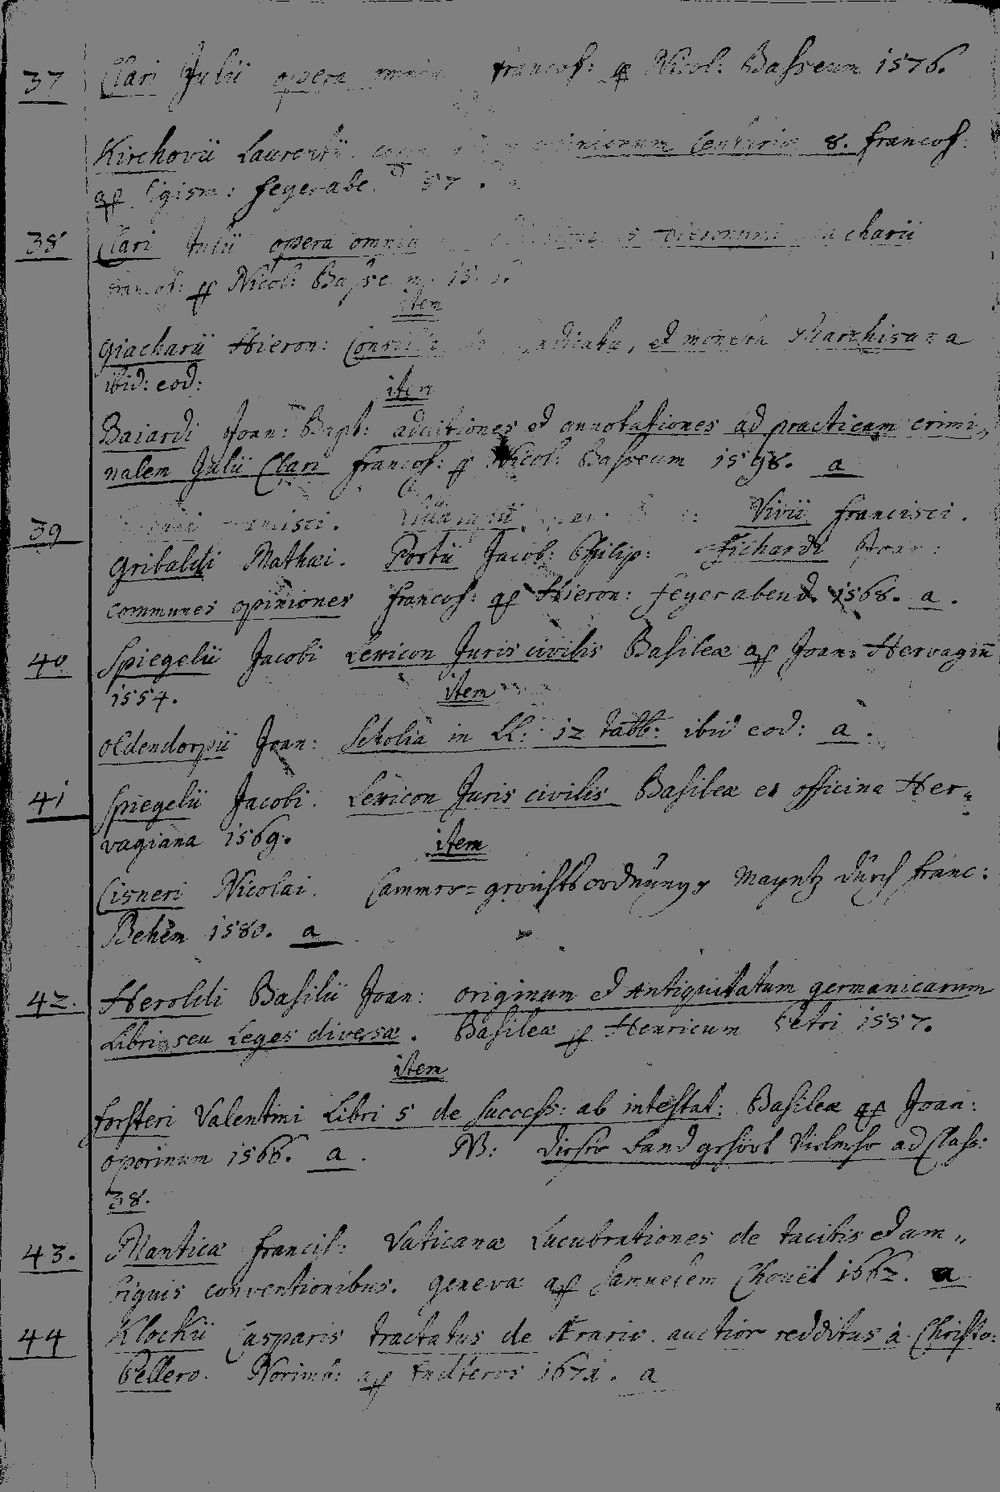 37 Clari Julii opera omnia francof: ap Nicol: Basseum 1576.
Kirchovii Laurentii opinionum Centuriæ 8. francof:
ap Sigism: feyerabe 87.
38 Clari Julii opera omnia Hieronimi charii
francof: ap Nicol: Basse 15
item
Giacharii Hieron: , et minera Marchisana
ibid: eod:
item
Baiardi Joan: Bapt: additiones et annotationes ad practicam crimi„
nalem Julii Clari francof: ap Nicol: Basseum 1598. a
39 francisci. Vivii francisci.
Gribaldi Mathæi. Portii Jacob: Philip: Fichardi Joan:
communes opiniones francof: ap Hieron: feyerabend. 1568. a.
40 Spiegelii Jacobi Lexicon Juris civilis Basileæ ap Joan: Hervagiũ
1554.
item
Oldendorpii Joan: Scholia in LL: 12 tabb: ibid eod: a.
41 Spiegelii Jacobi. Lexicon Juris civilis Basileæ ex officina Her=
vagiana 1569.
item
Cisneri Nicolai. Cammer=gerichts ordnung, Mayntz durch Franc:
Behem 1580. a
42. Heroldi Basilii Joan: originum et Antiquitatum germanicarum
Libri seu Leges diversæ. Basileæ p Henricum Petri 1557.
item
forsteri Valentini Libri 5 de success: ab intestat: Basileæ ap Joan:
oporinum 1566. a. NB: Dieser band gehört ad Class:
38.
43. Manticæ francis: Vaticanæ Lucubrationes de tacitis et am„
biguis conventionibus. genevæ ap Samuelem Chouët 1662. a
44 Klockii Casparis tractatus de Ærario. auctior redditus à Christo:
Pellero. Norimb: ap 1671. a